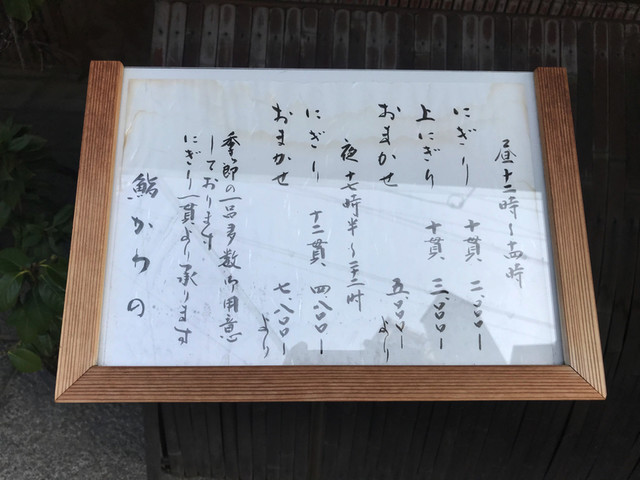 昼 十二時〜十四時
にぎり 十貫 二、〇〇〇ー
上にぎり 十貫 三、〇〇〇ー
おまかせ 五、〇〇〇ーより
夜 十七時半〜二十二時
にぎり 十二貫 四、八〇〇ー
おまかせ 七、八〇〇ーより
季節の一品多数御用意
しております
にぎり一貫より承ります
鮨かわの